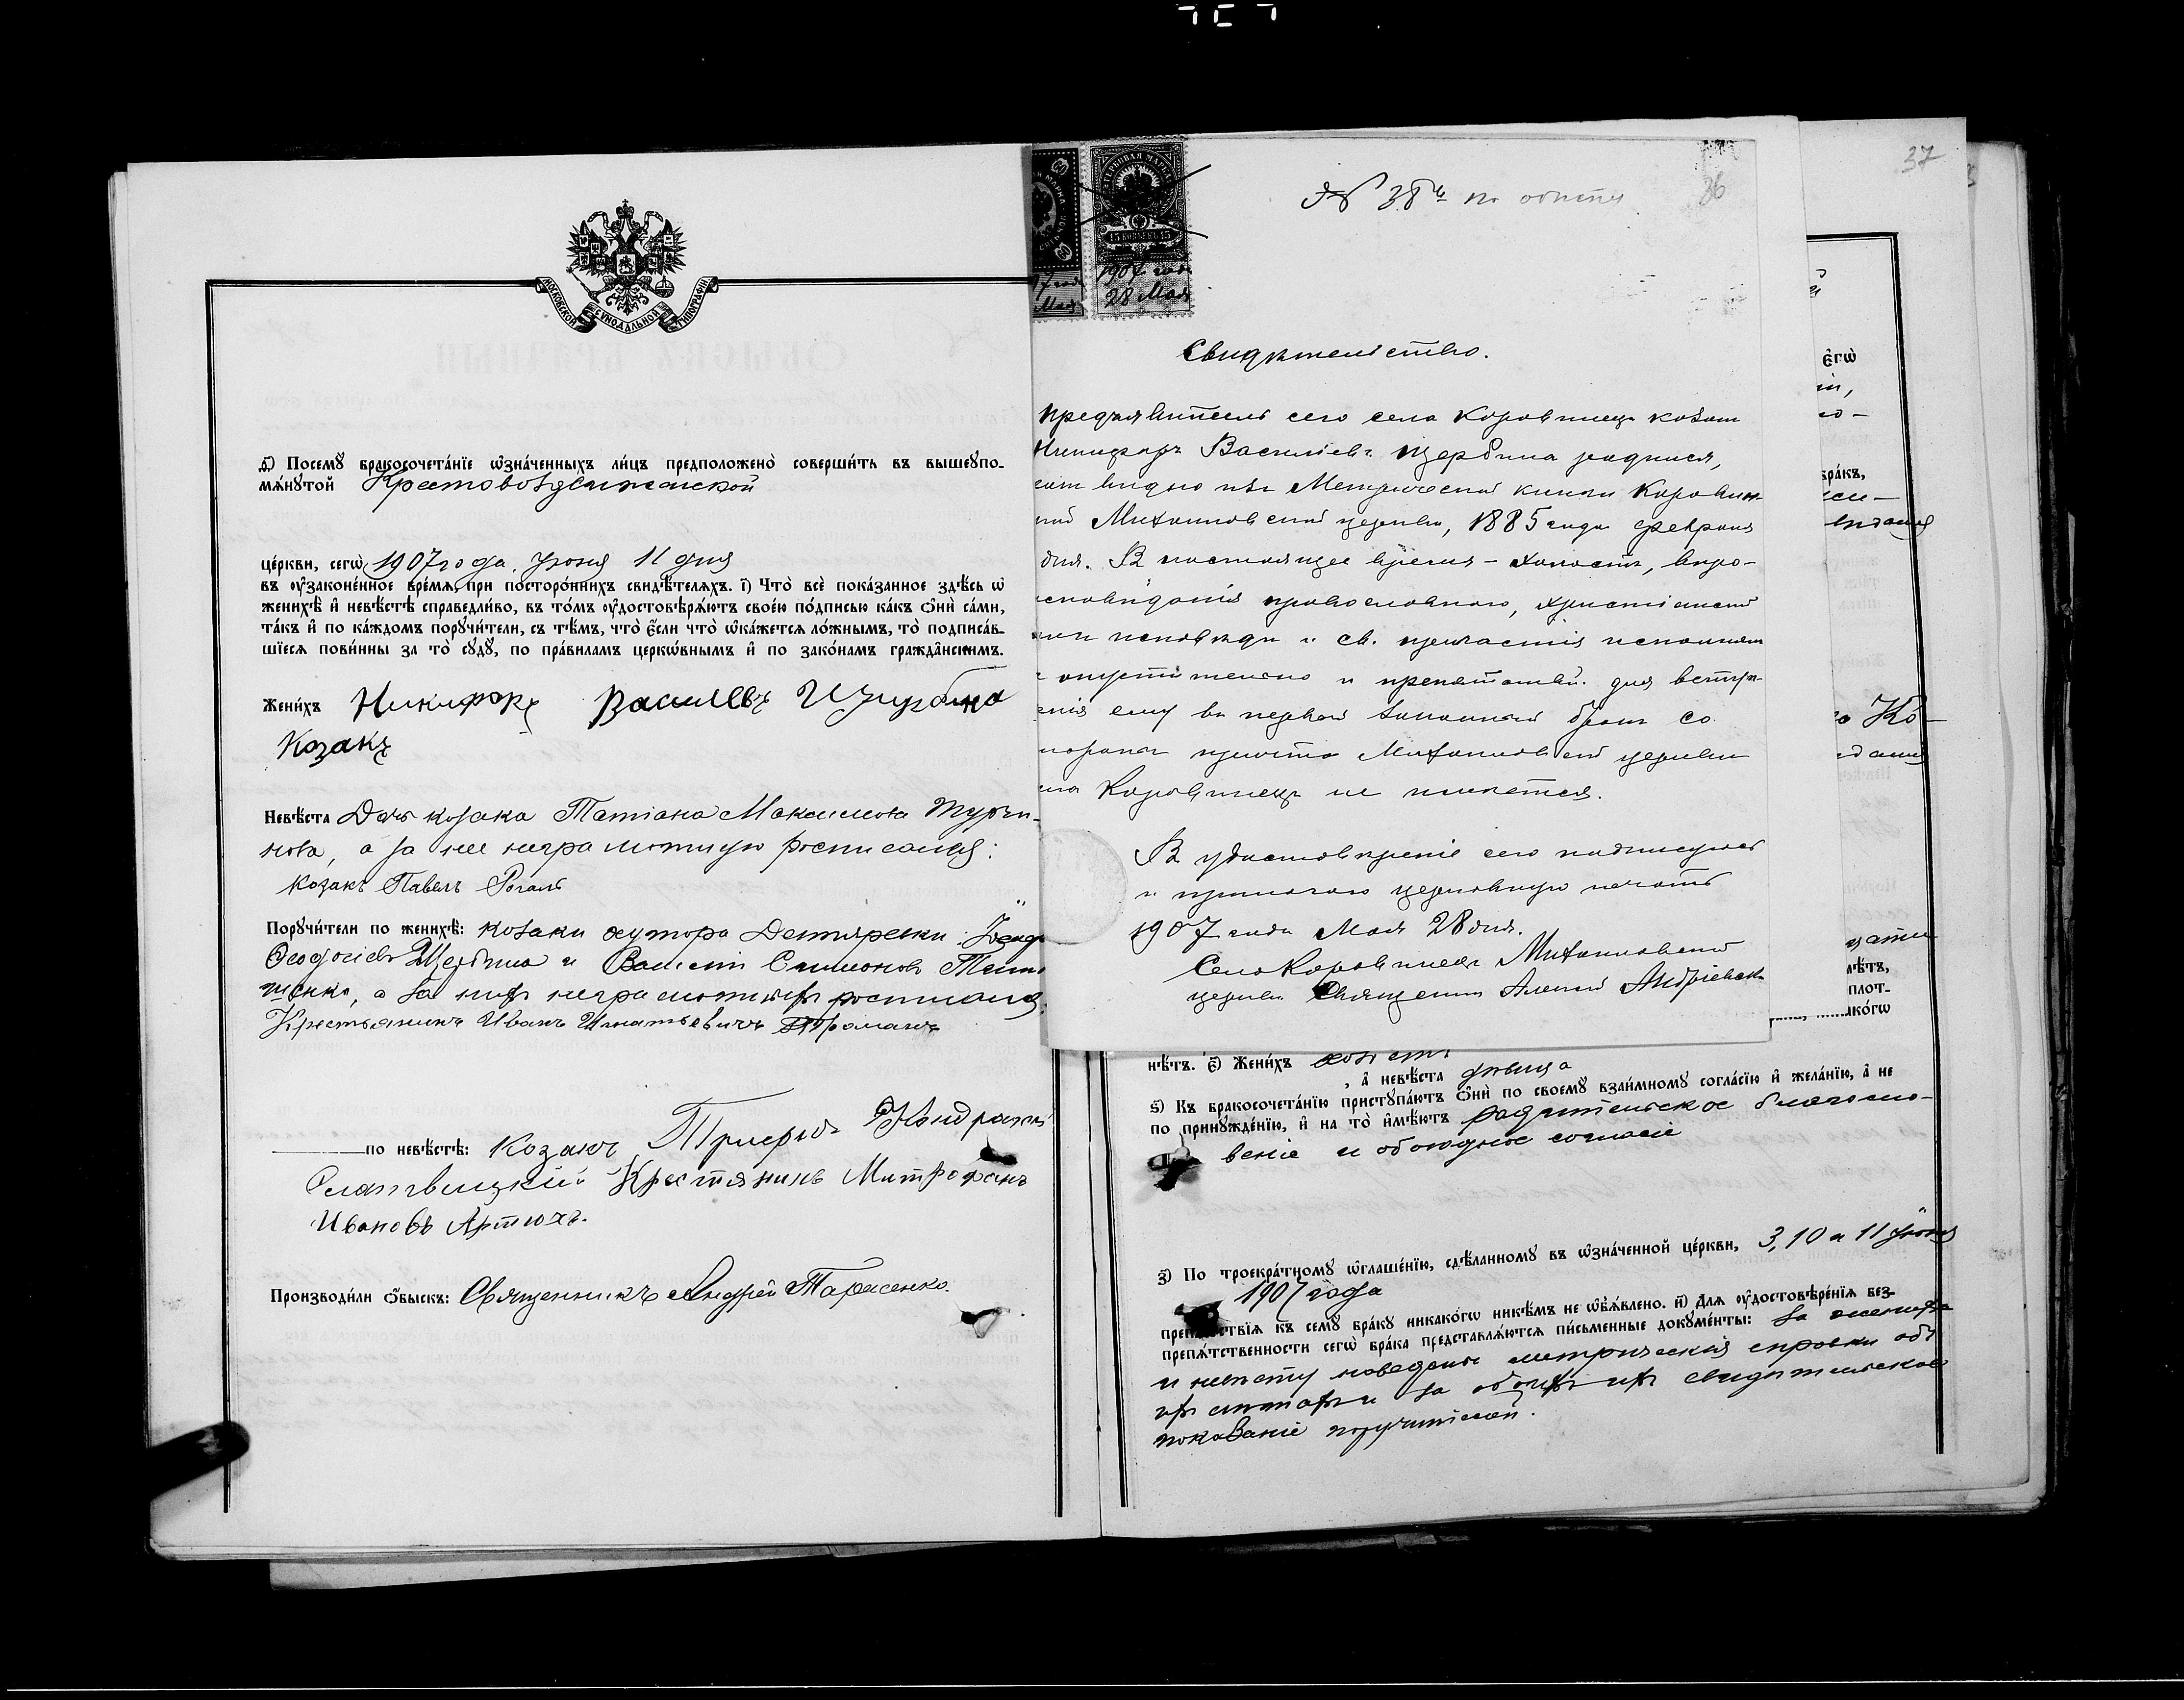 МОСКОВСКОЙ СѴНОДАЛЬНОЙ ТИПОГРАФІИ
д҃) Посемꙋ̀ бракосочета́нїе ѡ҆зна́ченныхъ ли́цъ предположено̀ соверши́ть въ вышеꙋпо-
мѧ́нꙋтой Крестовоздвиженской
це́ркви, сегѡ̀ 1907 года. Іюня 11 дня
въ ᲂу҆законе́нное вре́мѧ, при посторо́ннихъ свидѣ́телѧхъ. і҃) Что̀ всѐ пока́занное здѣ́сь ѡ҆
женихѣ̀ и҆ невѣ́стѣ справедли́во, въ то́мъ ᲂу҆достовѣрѧ́ютъ свое́ю по́дписью ка́къ ѻ҆нѝ са́ми,
та́къ и҆ по ка́ждомъ порꙋчи́тели, съ тѣ́мъ, что̀ є҆́сли что̀ ѡ҆ка́жетсѧ ло́жнымъ, то̀ подписа́в-
шїесѧ пови́нны за то̀ сꙋдꙋ̀, по пра́виламъ церко́внымъ и҆ по зако́намъ гражда́нскимъ.
Жени́хъ Никифоръ Василевъ Щирбина
Козакъ
Невѣ́ста Дочь козака Татіана Максимова Турчи-
нова, а за нее неграмотную росписался:
Козакъ Павелъ Рогаль
Порꙋчи́тели по женихѣ̀: козаки хутора Дегтяревки
Ѳеодосіевъ Щербина и Василій Симоновъ
а за нихъ неграмотныхъ росписался:
Крестьянинъ Иванъ Игнатьевичъ
по невѣ́стѣ: Козакъ Трифонъ Кондратьевъ
Крестянинъ Митрофанъ
Ивановъ Артюхъ.
Производи́ли ѻ҆́быскъ: Священникъ Андрей Тарасенко.
№ 38й къ обыску
36
15 КОПѢЕКЪ 15
1907 года
28 Мая
Свидѣтельство.
Предъявитель сего села Коровинецъ козакъ
Никифоръ Василіевъ Щербина родился,
какъ видно изъ Метрической книги Коровин-
ской Михайловской церкви, 1885 года февраля
дня. Въ настоящее время – холостъ, вѣро-
исповѣданія православнаго, христіанскій
долгъ исповѣди и св. причастія исполнялъ
и препятствій для вступ-
ленія ему въ первый законный бракъ со
стороны причта Михайловской церкви
села Коровинецъ не имѣется.
Въ удостовѣреніе сего подписуюсь
и прилагаю церковную печать
1907 года Мая 28 дня.
Села Коровинецъ Михайловской
церкви Священникъ Алексій Андріевск
37
є҆гѡ̀
бра́къ,
Ко-
лѣ́тъ,
плот-
никако́гѡ
нѣ́тъ. є҃) Жени́хъ холостъ
, а҆ невѣ́ста дѣвица
ѕ҃) Къ бракосочета́нїю пристꙋпа́ютъ ѻ҆нѝ по своемꙋ̀ взаи́мномꙋ согла́сїю и҆ жела́нїю, а҆ не
по принꙋжде́нїю, и҆ на то̀ и҆мѣ́ютъ родительское благосло-
веніе и обоюдное согласіе
з҃) По троекра́тномꙋ ѡ҆глаше́нїю, сдѣ́ланномꙋ въ ѡ҆зна́ченной це́ркви, 3, 10 и 11 Іюня
1907 года
препѧ́тствїѧ къ семꙋ̀ бра́кꙋ никако́гѡ никѣ́мъ не ѡ҆б̾ѧ́влено. и҃) Длѧ ᲂу҆достовѣре́нїѧ без-
препѧ́тственности сегѡ̀ бра́ка представлѧ́ютсѧ пи́сьменные докꙋме́нты: За жениха
и невѣсту поведены метрическія справки объ
ихъ лѣтахъ и за обоихъ ихъ свидѣтельское
показаніе поручителей.